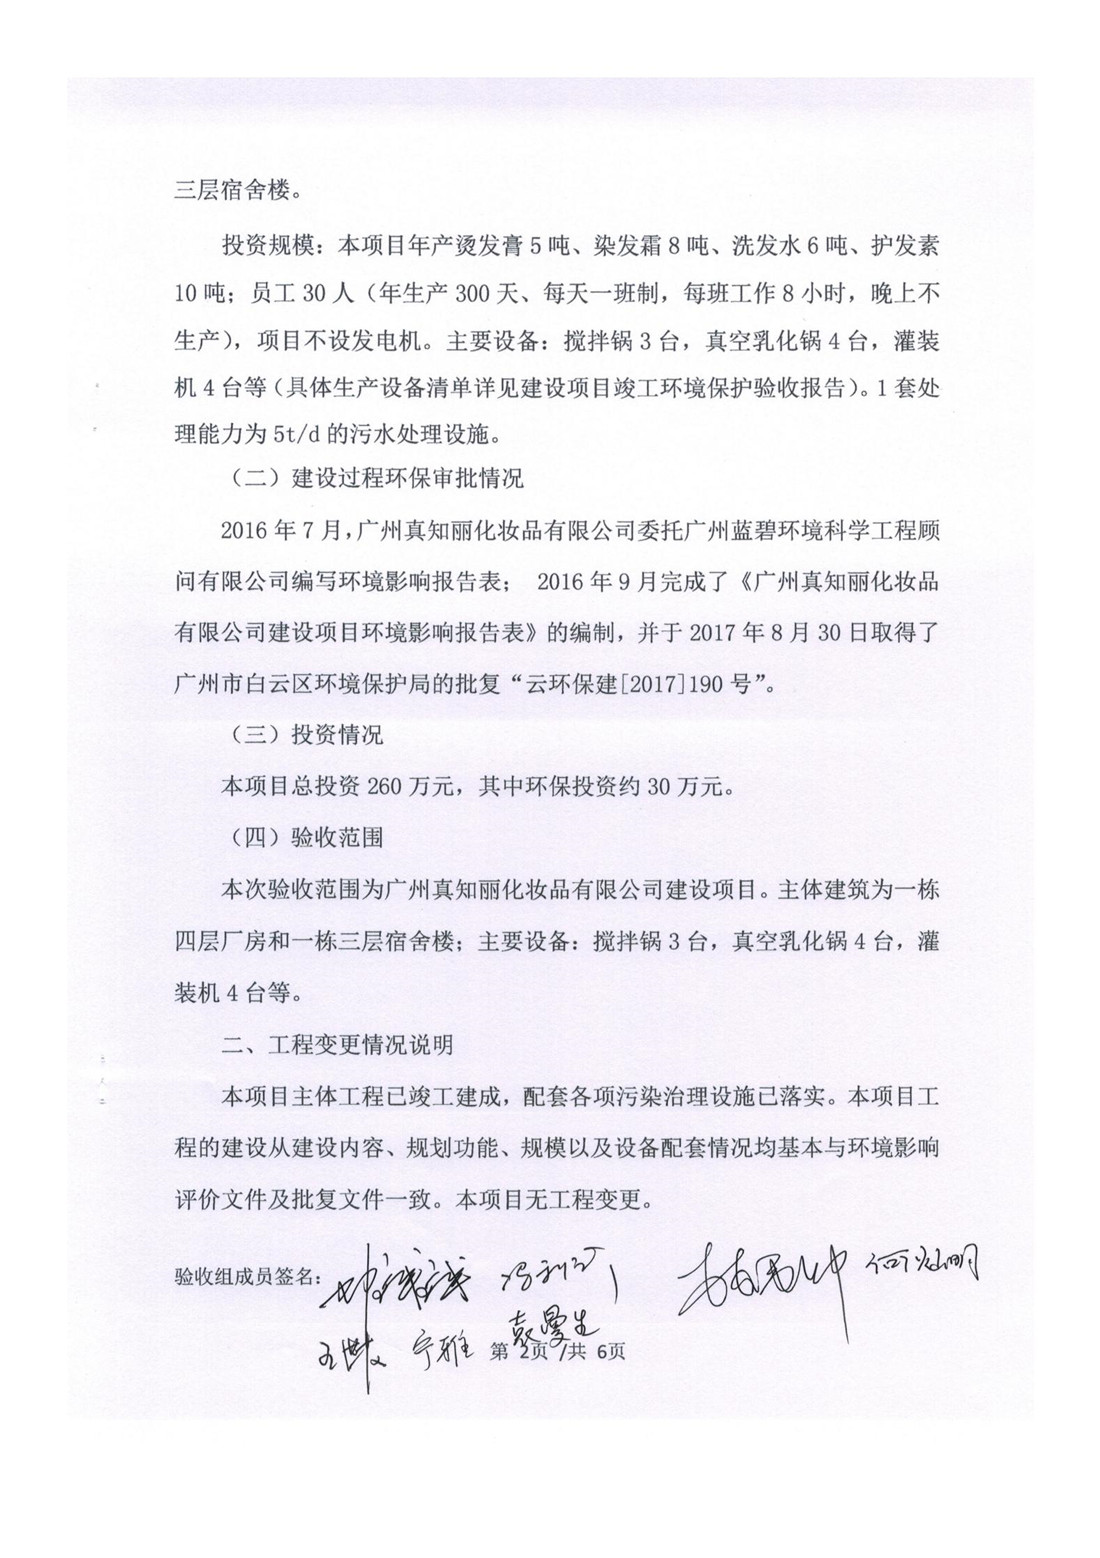 三层宿舍楼。
投资规模：本项目年产烫发膏5吨、染发霜8吨、洗发水6吨、护发素
10吨；员工30人（年生产300天、每天一班制，每班工作8小时，晚上不
生产），项目不设发电机。主要设备：搅拌锅3台，真空乳化锅4台，灌装
机4台等（具体生产设备清单详见建设项目竣工环境保护验收报告）。1套处
理能力为5t/d的污水处理设施。
（二）建设过程环保审批情况
2016年7月，广州真知丽化妆品有限公司委托广州蓝碧环境科学工程顾
问有限公司编写环境影响报告表； 2016年9月完成了《广州真知丽化妆品
有限公司建设项目环境影响报告表》的编制，并于2017年8月30日取得了
广州市白云区环境保护局的批复“云环保建[2017]190号”。
（三）投资情况
本项目总投资260万元，其中环保投资约30万元。
（四）验收范围
本次验收范围为广州真知丽化妆品有限公司建设项目。主体建筑为一栋
四层厂房和一栋三层宿舍楼；主要设备：搅拌锅3台，真空乳化锅4台，灌
装机4台等。
二、工程变更情况说明
本项目主体工程已竣工建成，配套各项污染治理设施已落实。本项目工
程的建设从建设内容、规划功能、规模以及设备配套情况均基本与环境影响
评价文件及批复文件一致。本项目无工程变更。
验收组成员签名：
宁雅 袁曼生
第 2页 /共 6页